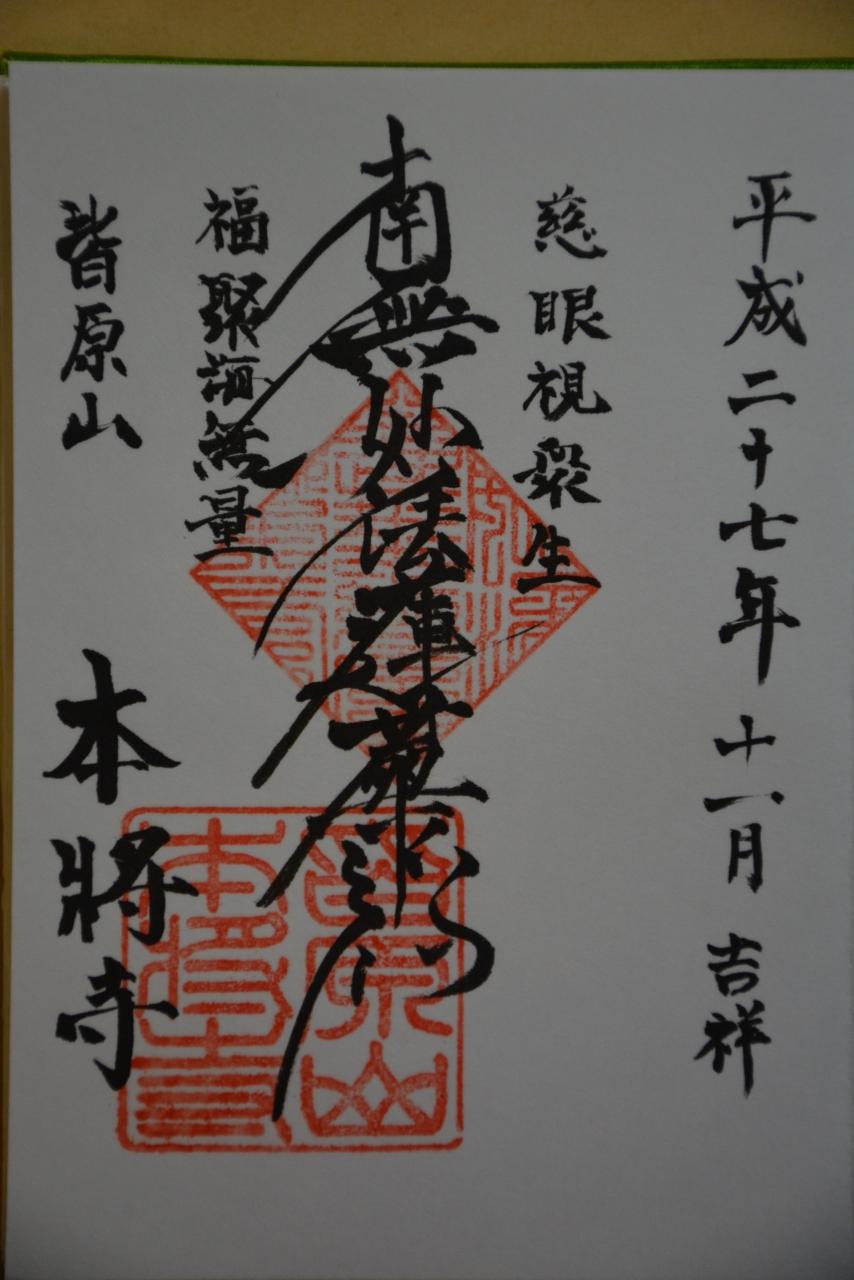 平成二十七年 十一月 吉祥
慈眼視衆生
南無妙法蓮華経
福聚海無量
皆原山
本將寺
皆原山
本將寺